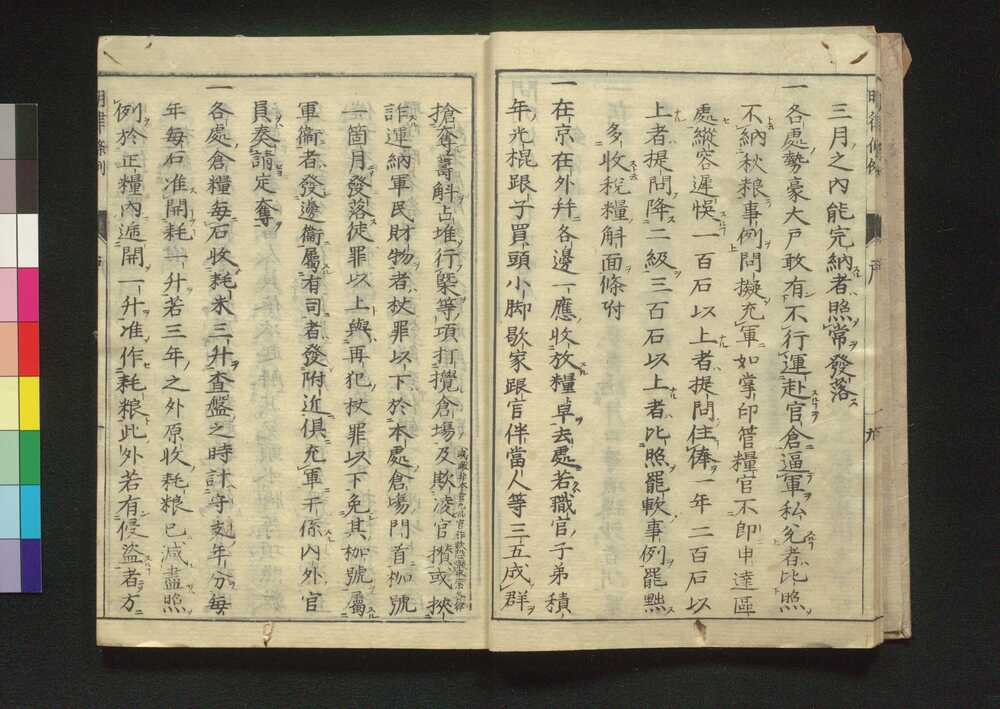 三月之内能完納者照常發落
一各處勢豪大戸敢有不行運赴官倉逼軍私兌者比照
不納秋粮事例問擬充軍如掌印管糧官不即申達區
處縱容遲悞一百石以上者提問住俸一年二百石以
上者提問降二級三百石以上者比照罷軟事例罷黜
多收税糧斛面條附
一在京在外幷各邊一應收放糧草去處若職官子弟積
年光棍跟子買頭小脚歇家跟官伴當人等三五成群
搶奪籌斛占堆行槩等項打攪倉場及欺凌官攅或挾
詐運納軍民財物者杖罪以下於本處倉場門首枷號
一箇月發落徒罪以上與再犯杖罪以下免其枷號屬
軍衞者發邊衞屬有司者發附近俱充軍干係内外官
員奏請定奪
一各處倉糧毎石收耗米三升査盤之時計守支年分毎
年毎石准開耗一升若三年之外原收耗粮已减盡照
例於正糧内逓開一升准作耗粮此外若有侵盜者方
明律 條例